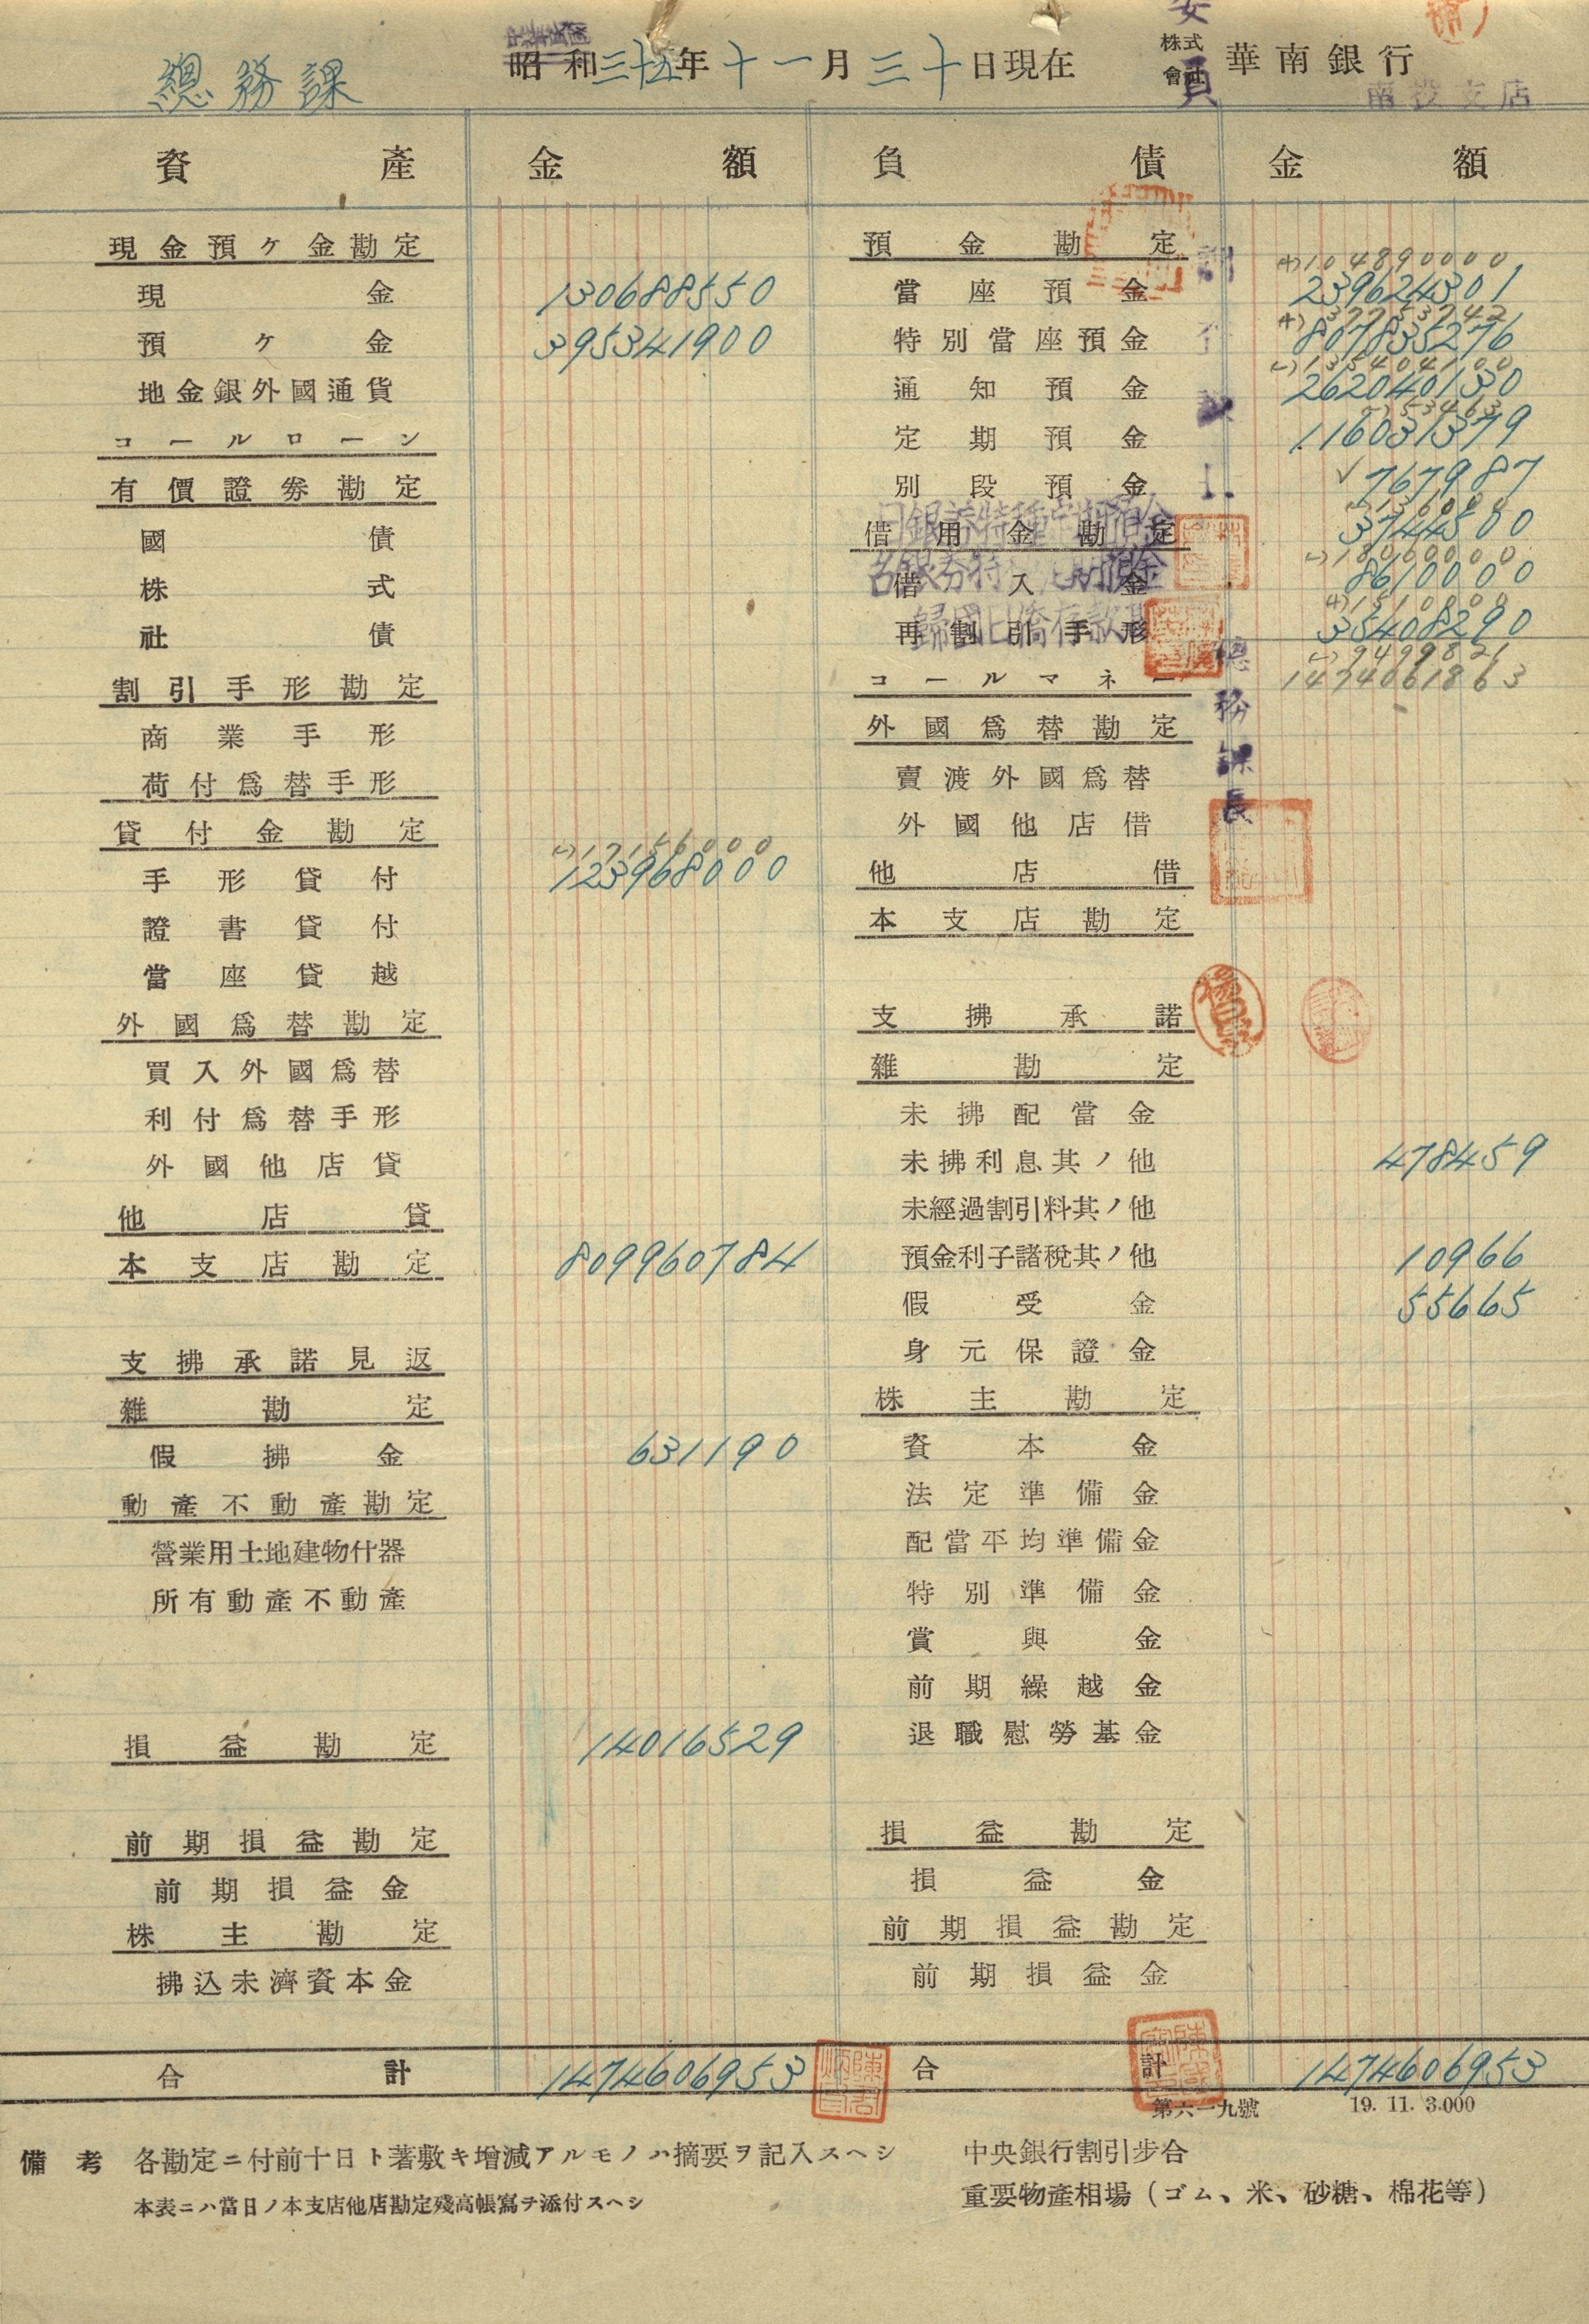 總務課
中華民國
昭和三十五年十一月三十日現在
株式會社 華南銀行
南投支店
資產 金額 負債 金額
現金預ケ金勘定
現金 130688550
預ケ金 395341900
地金銀外國通貨
コールローン
有價證券勘定
國債
株式
社債
割引手形勘定
商業手形
荷付爲替手形
貸付金勘定
(-) 17156000
手形貸付 123968000
證書貸付
當座貸越
外國爲替勘定
買入外國爲替
利付爲替手形
外國他店貸
他店貸
本支店勘定 809960784
支拂承諾見返
雜勘定
假拂金 631190
動產不動產勘定
營業用土地建物什器
所有動產不動產
損益勘定 14016529
前期損益勘定
前期損益金
株主勘定
拂込未濟資本金
合計 1474606953
預金勘定
(+) 104890000
當座預金 239624301
(+) 37753742
特別當座預金 807835276
(-) 135404100
通知預金 262040130
(-) 53463
定期預金 116031379
別段預金 767987
日銀券特種定期預金
(-) 136000
借用金勘定 3744500
台銀券特種定期預金
(-) 1800000
借入金 8610000
歸國日僑存款
(+) 1510000
再割引手形 35408290
(-) 9499821
コールマネー 1474061863
外國爲替勘定
賣渡外國爲替
外國他店借
他店借
本支店勘定
支拂承諾
雜勘定
未拂配當金
未拂利息其ノ他 478459
未經過割引料其ノ他
預金利子諸稅其ノ他 10966
假受金 55665
身元保證金
株主勘定
資本金
法定準備金
配當平均準備金
特別準備金
賞與金
前期繰越金
退職慰勞基金
損益勘定
損益金
前期損益勘定
前期損益金
合計 1474606953
總務課長
第六一九號 19. 11. 3.000
備考 各勘定ニ付前十日ト著敷キ增減アルモノハ摘要ヲ記入スヘシ
本表ニハ當日ノ本支店他店勘定殘高帳寫チ添付スヘシ
中央銀行割引步合
重要物產相場（ゴム、米、砂糖、棉花等）